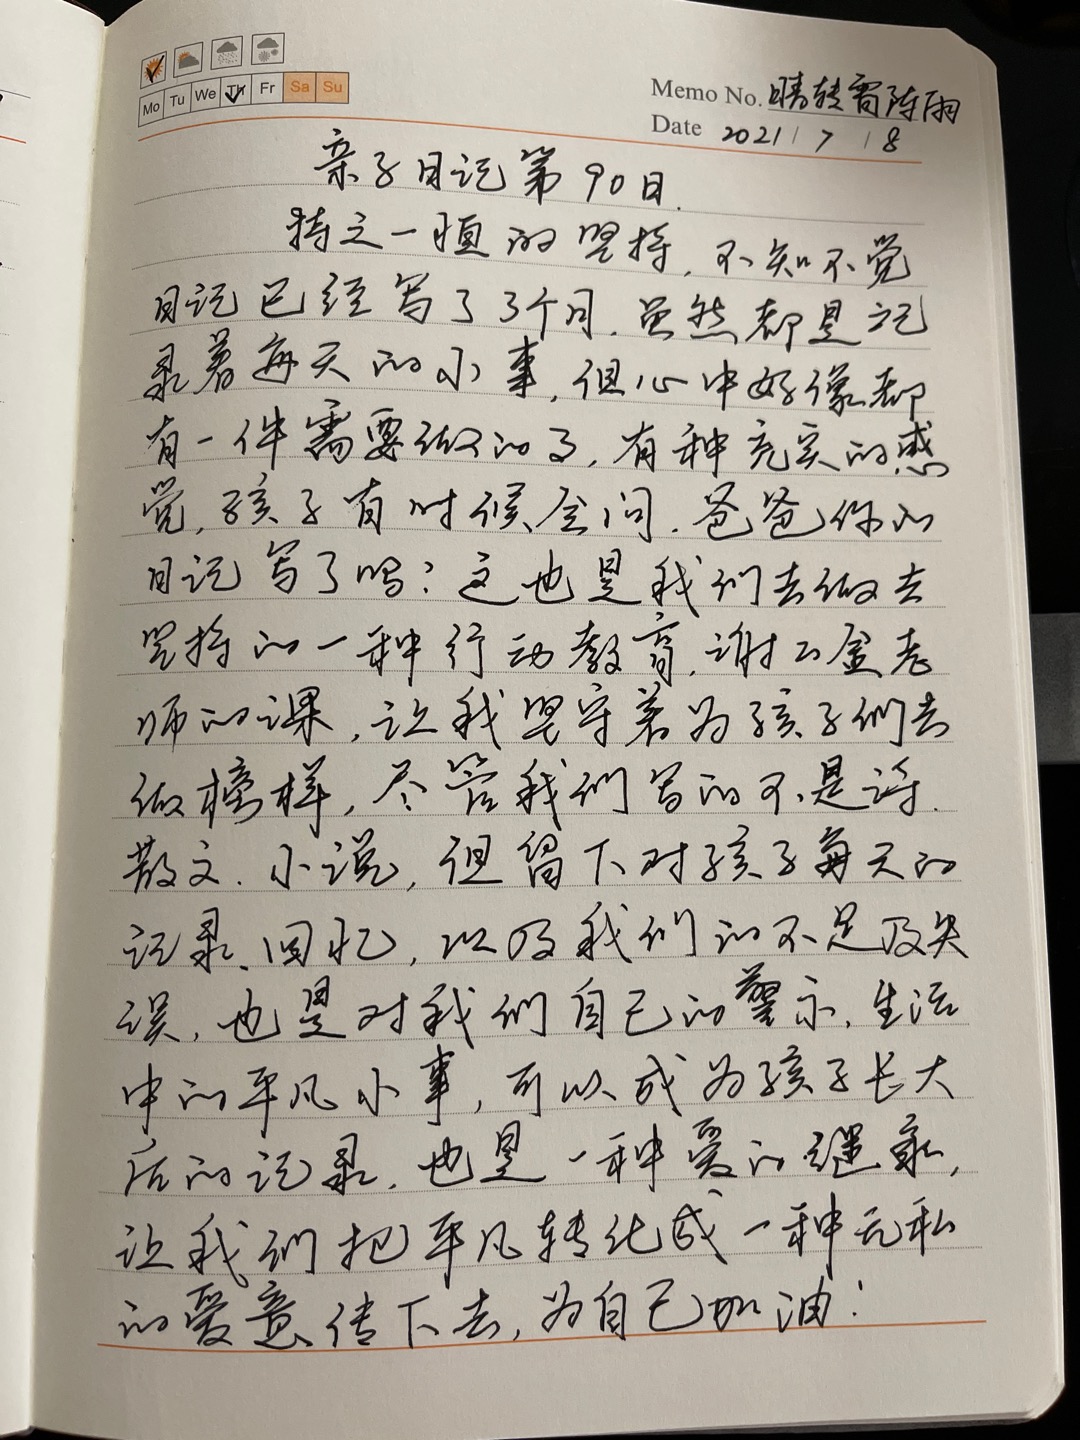 Mo Tu We Th Fr Sa Su
Memo No. 晴转雷阵雨
Date 2021/7/8
亲子日记第90日.
持之一恒的坚持,不知不觉
日记已经写了3个月.虽然都是记
录着每天的小事,但心中好像都
有一件需要做的了,有种充实的感
觉,孩子有时候会问.爸爸你的
日记写了吗?这也是我们去做去
坚持的一种行动教育.谢以金老
师的课,让我坚守着为孩子们去
做榜样,尽管我们写的不是诗.
散文.小说,但留下对孩子每天的
记录、回忆,以及我们的不足及失
误,也是对我们自己的警示.生活
中的平凡小事,可以成为孩子长大
后的记录.也是一种爱的继承,
让我们把平凡转化成一种无私
的爱意传下去,为自己加油!